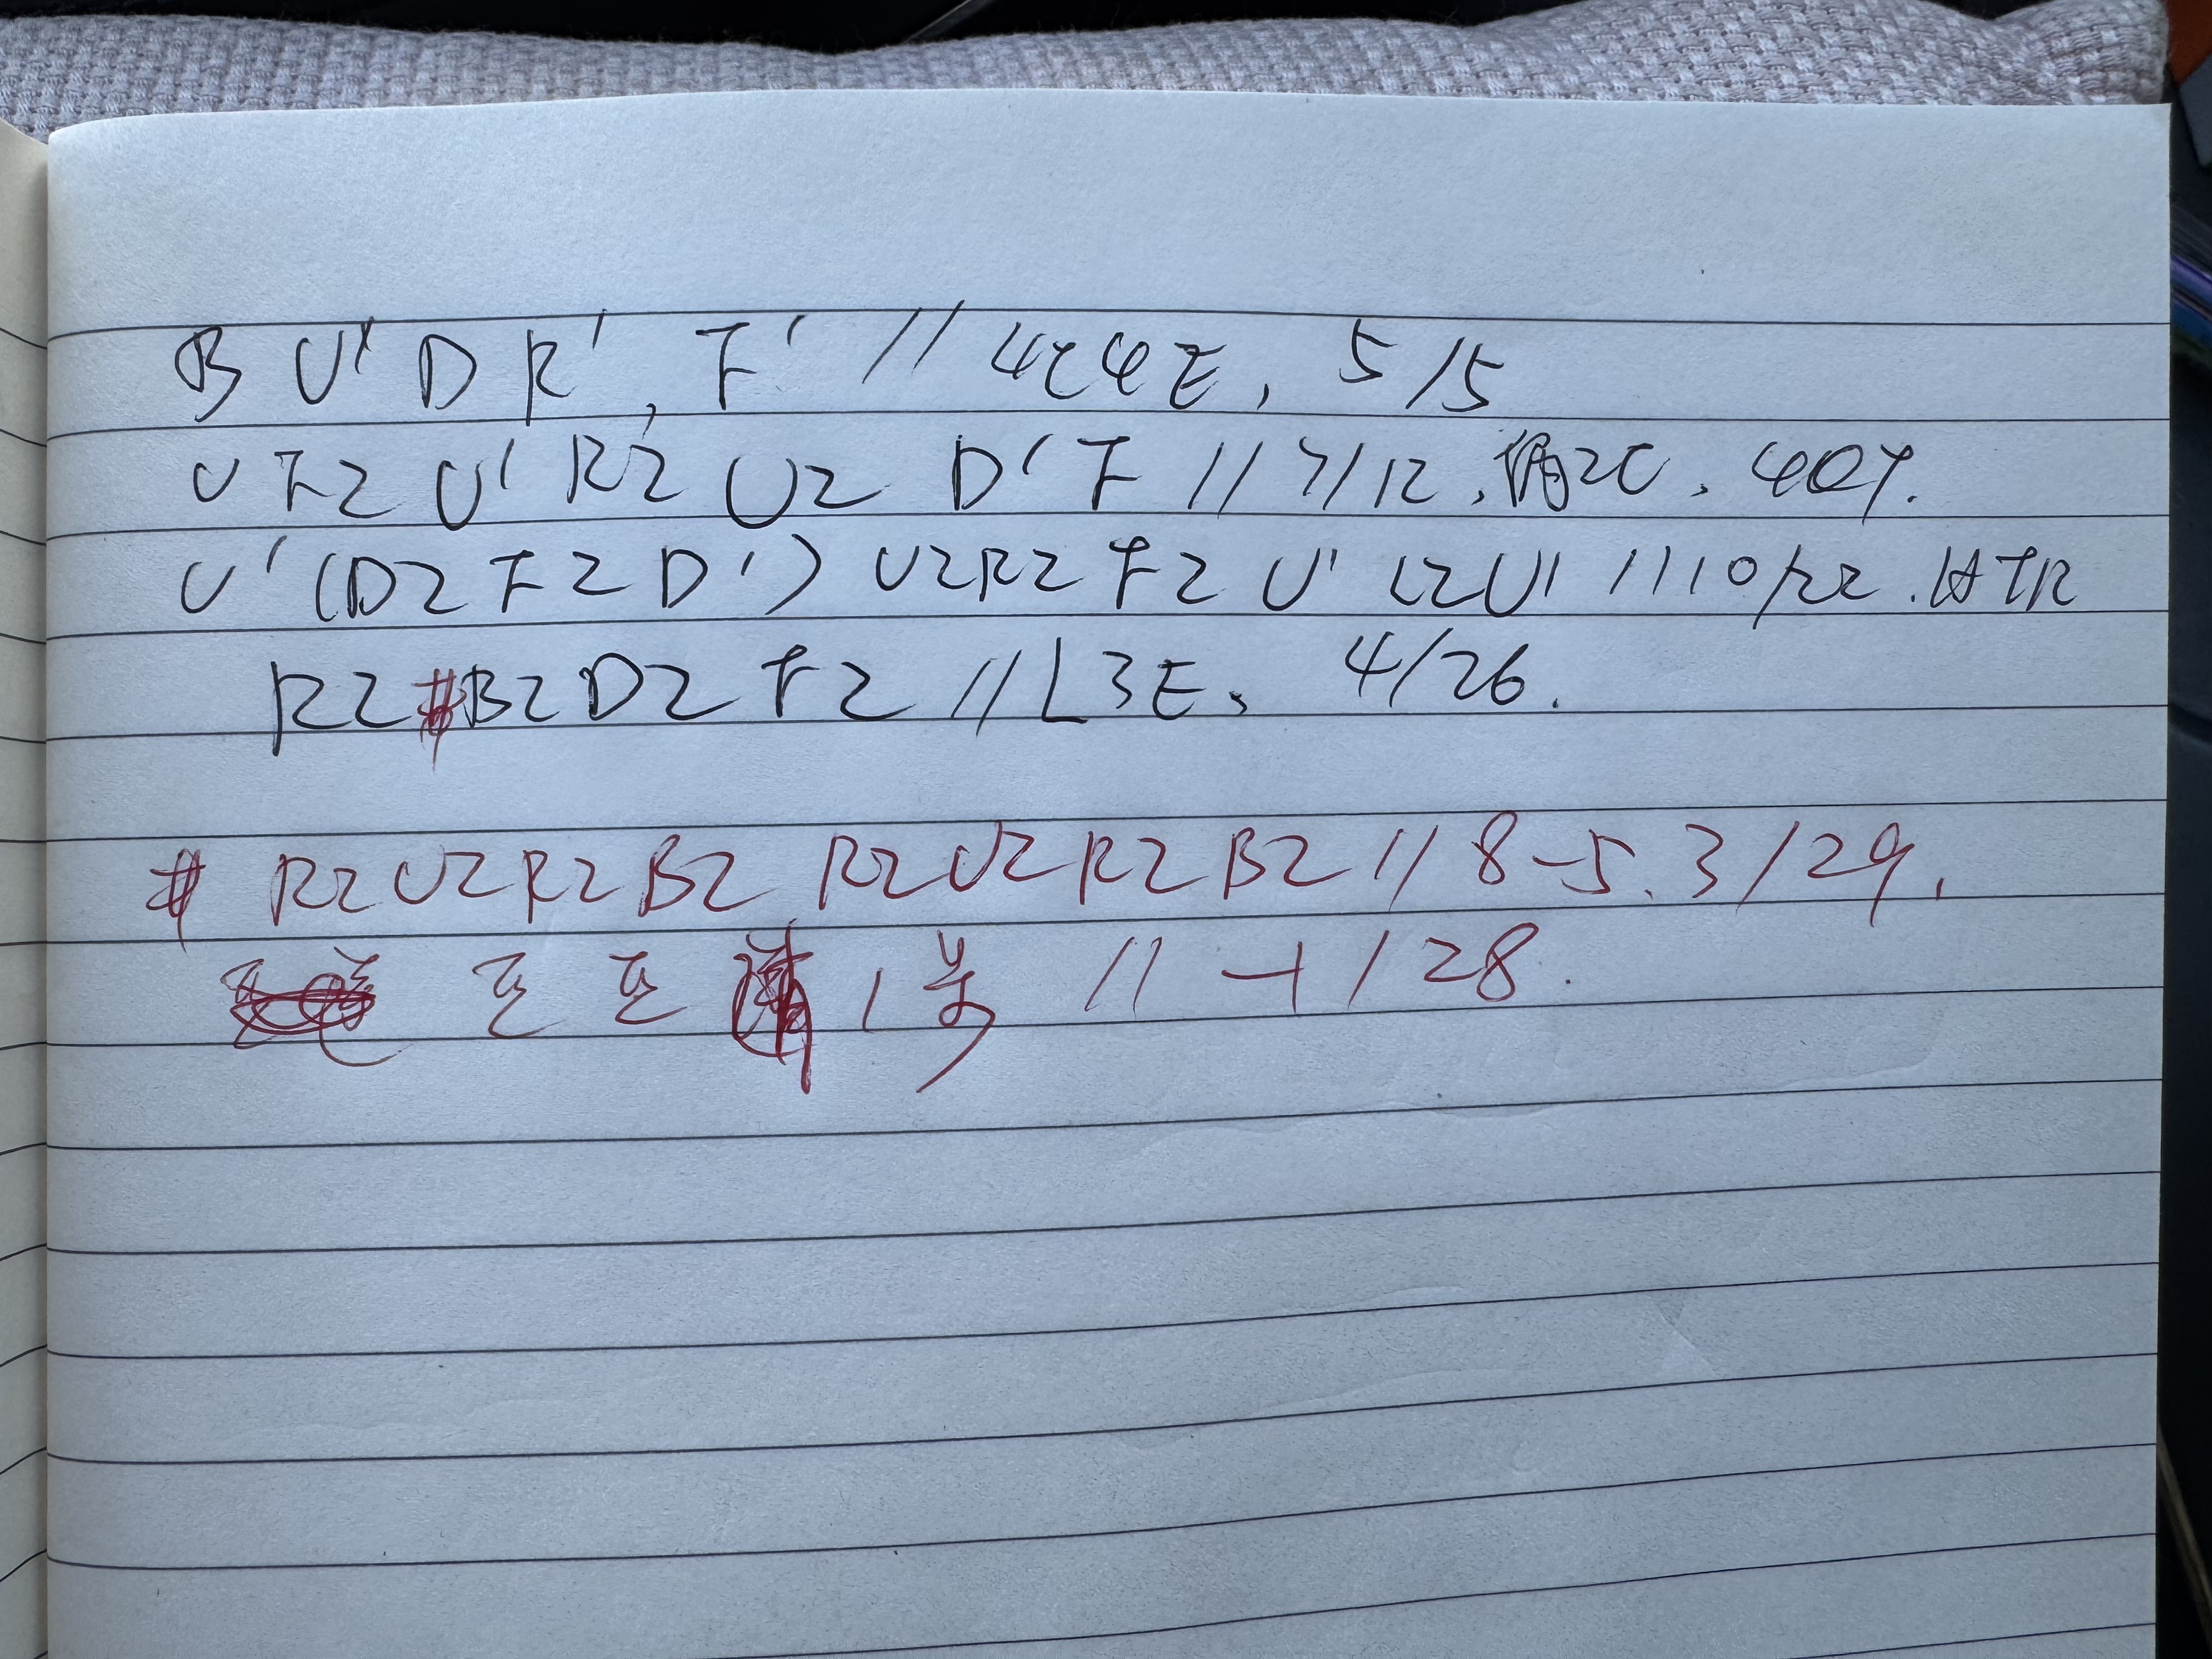 B U' D R', F' // 4C4E, 5/5
U F2 U' R2 U2 D' F // 7/12, 2C, 4QT.
U' (D2 F2 D') U2 R2 F2 U' L2 U' // 10/22. HTR
R2 # B2 D2 F2 // L3E, 4/26.
# R2 U2 R2 B2 R2 U2 R2 B2 // 8-5. 3/29.
E E 1步 // -1/28.